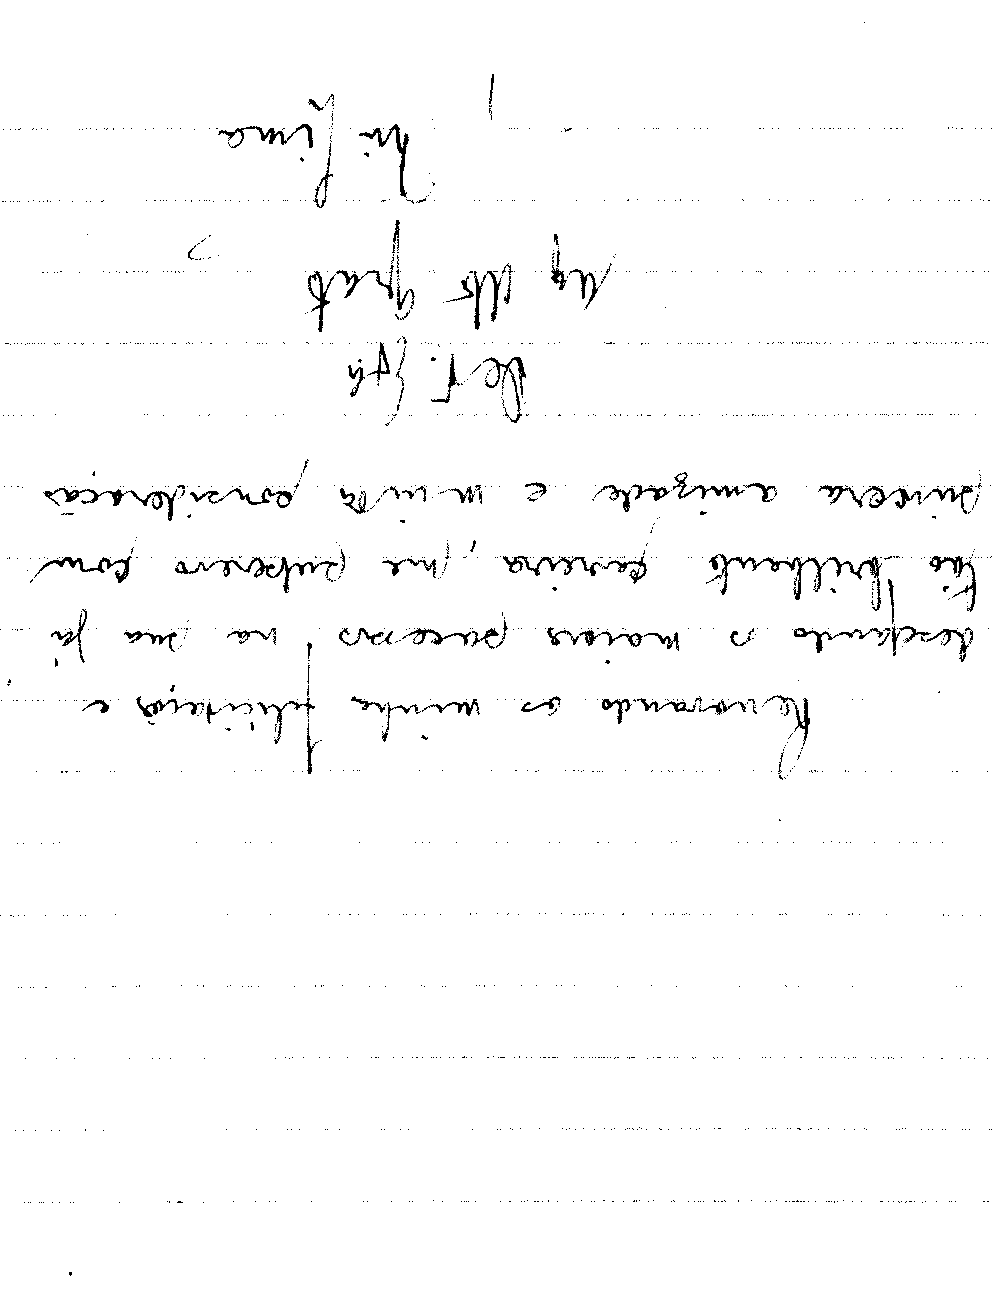 Renovando as minhas felicitações e
desejando os maiores sucessos na sua já
tão brilhante carreira, me subscrevo com
sincera amizade e muita consideração
De V. Exª
Mº Atº Grato
Lima